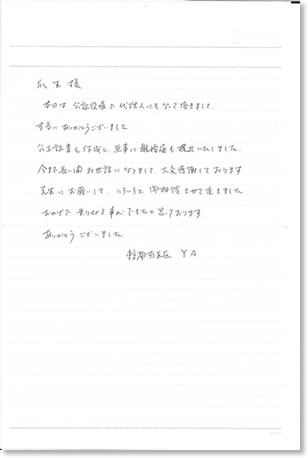 瓜生様
本日は公証役場で代理人にもなって頂きまして、
本当にありがとうございました
公正証書も作成し、無事に離婚届も提出いたしました。
今まで長い間お世話になりまして、大変感謝しております
先生にお願いして、いろいろと御相談させて頂きました
おかげで乗り切る事ができたと思っております
ありがとうございました
京都市左京区 YA